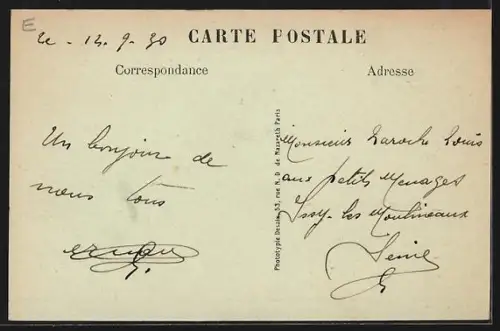 E
le - 14-9-30
CARTE POSTALE
Correspondance
Adresse
Un bonjour de
nous tous
Phototypie Desaix - 53, rue N.-D de Nazareth Paris
Monsieur Laroche Louis
aux petits Menages
Issy-les Moulineaux
Seine